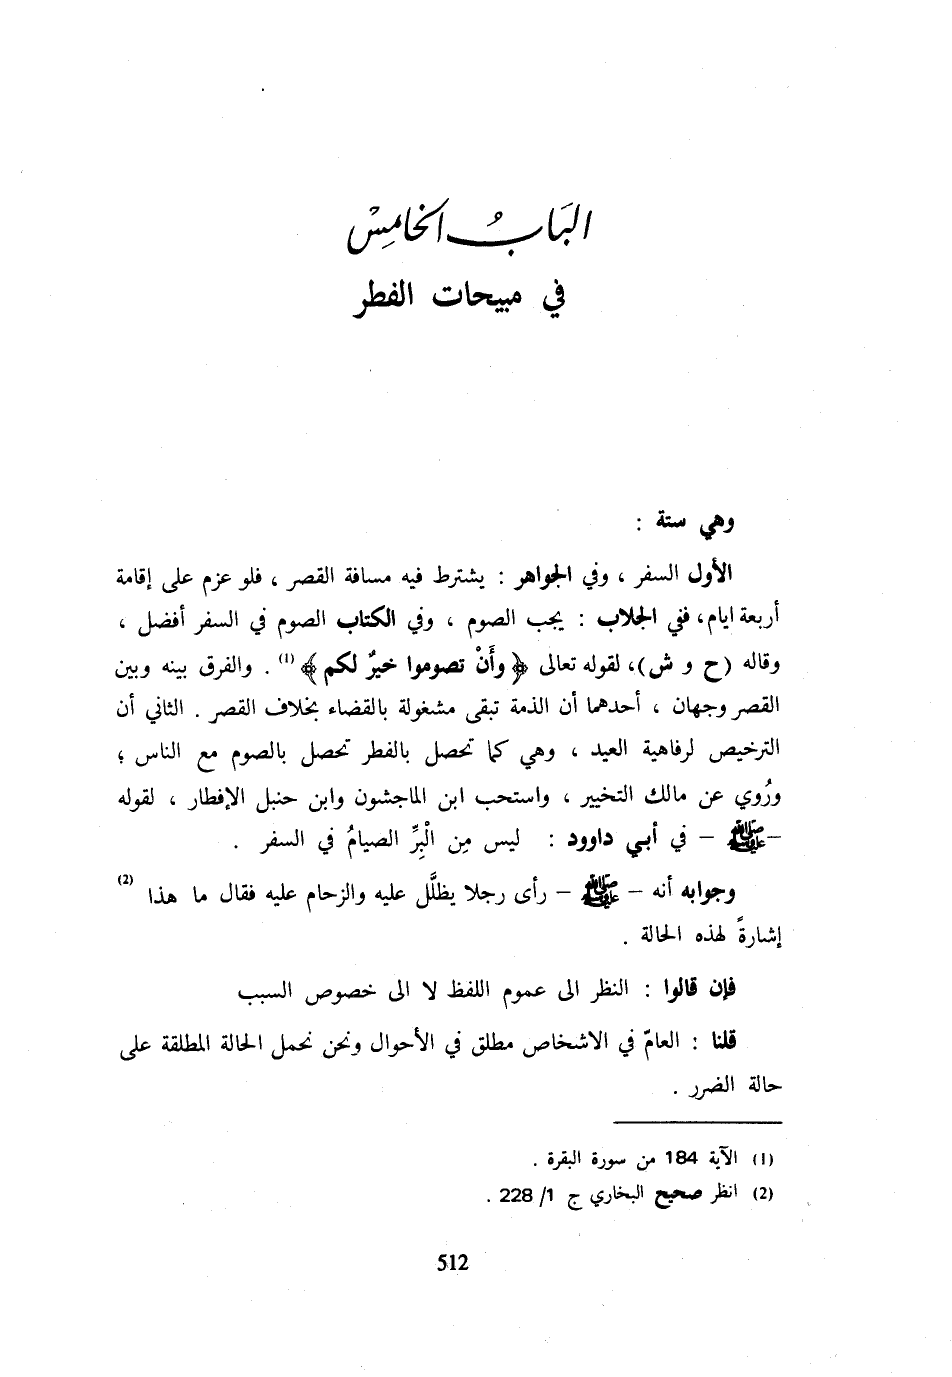 البَابُ الخَامِسْ
في مبيحات الفطر
وهي ستة :
الأول السفر ، وفي الجواهر : يشترط فيه مسافة القصر ، فلو عزم على إقامة
أربعة ايام، ففي الجلاب : يجب الصوم ، وفي الكتاب الصوم في السفر أفضل ،
وقاله (ح و ش)، لقوله تعالى ﴿ وأَنْ تصوموا خيرٌ لكم ﴾ (1) . والفرق بينه وبين
القصر وجهان ، أحدهما أن الذمة تبقى مشغولة بالقضاء بخلاف القصر . الثاني أن
الترخيص لرفاهية العيد ، وهي كما تحصل بالفطر تحصل بالصوم مع الناس ؛
ورُوي عن مالك التخيير ، واستحب ابن الماجشون وابن حنبل الإفطار ، لقوله
– ﷺ – في أبي داوود : ليس مِن الْبِرِّ الصيامُ في السفر .
وجوابه أنه – ﷺ – رأى رجلا يظلَّل عليه والزحام عليه فقال ما هذا (2)
إشارةً لهذه الحالة .
فإن قالوا : النظر الى عموم اللفظ لا الى خصوص السبب
قلنا : العامّ في الاشخاص مطلق في الأحوال ونحن نحمل الحالة المطلقة على
حالة الضرر .
(1) الآية 184 من سورة البقرة .
(2) انظر صحيح البخاري ج 1/ 228 .
512